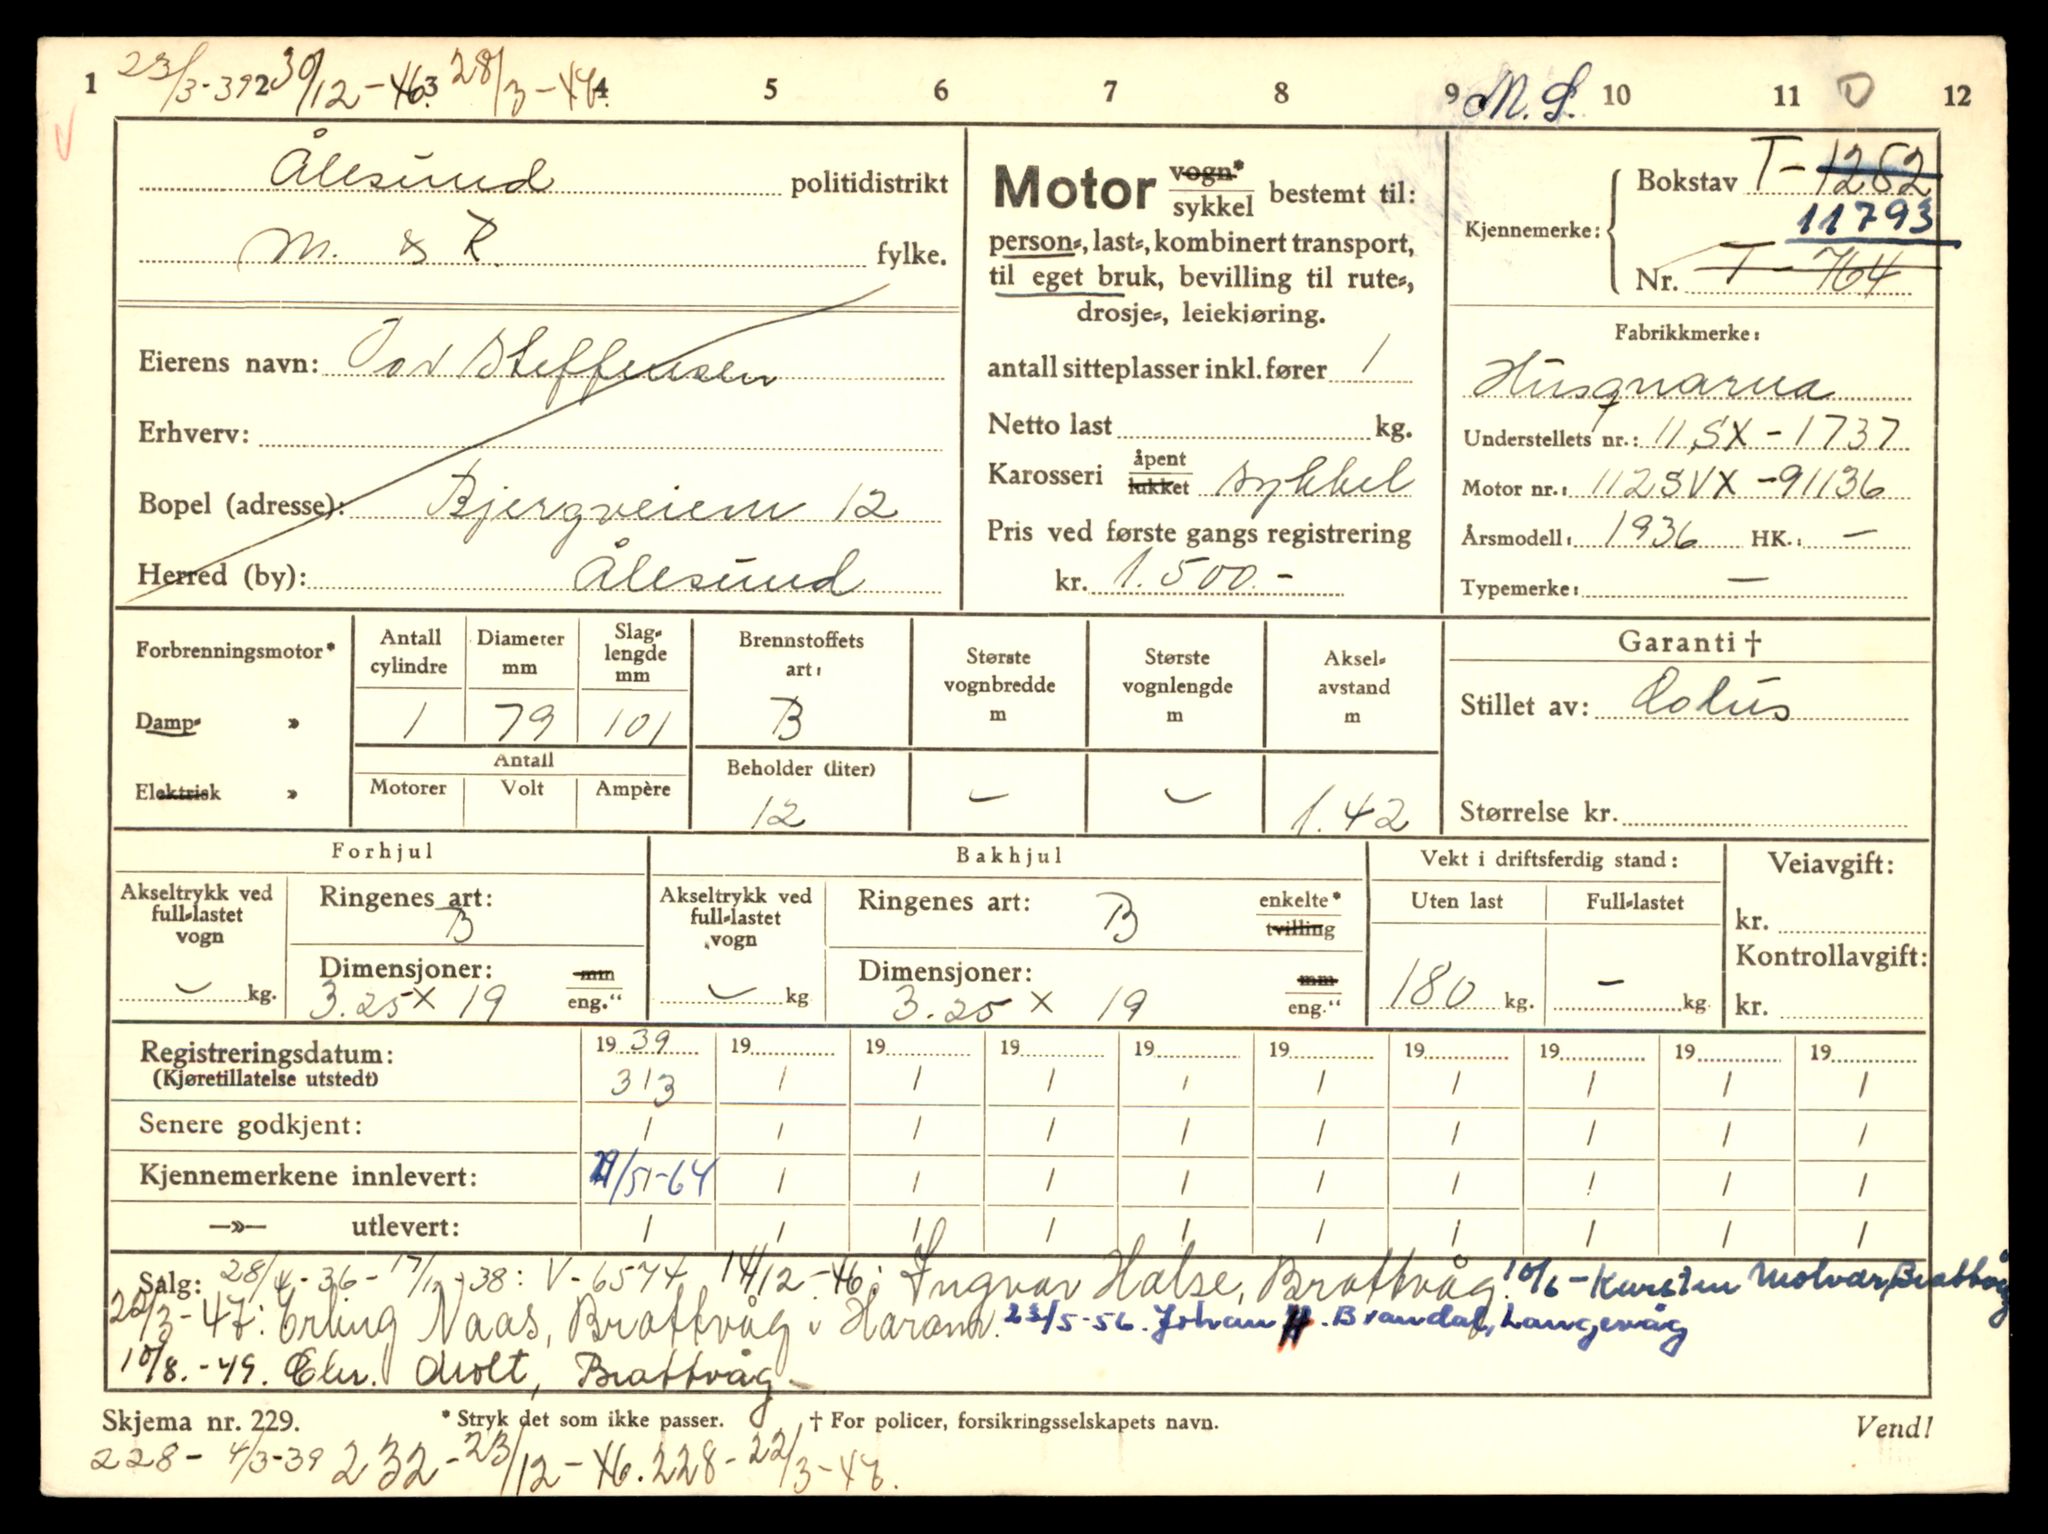 1 23/3-39 2 30/12-46. 3 28/3-47. 4 5 6 7 8 9 M. S. 10 11 D 12
V
Ålesund politidistrikt
M. & R. fylke.
Eierens navn: Steffensen
Erhverv:
Bopel (adresse): Bjergveien 12
Herred (by): Ålesund
Motor vogn* sykkel bestemt til:
person-, last-, kombinert transport,
til eget bruk, bevilling til rute-,
drosje-, leiekjøring.
antall sitteplasser inkl. fører 1
Netto last kg.
Karosseri åpent lukket sykkel
Pris ved første gangs registrering
kr. 1.500.-
Kjennemerke: Bokstav T-1262
11793
Nr. T-764
Fabrikkmerke:
Husqvarna
Understellets nr.: 11SX-1737
Motor nr.: 112SVX-91136
Årsmodell: 1936 HK.: -
Typemerke: -
Forbrenningsmotor*
Damp- »
Elektrisk »
Antall cylindre 1
Diameter mm 79
Slag-lengde mm 101
Antall
Motorer Volt Ampère
Brennstoffets art: B
Beholder (liter) 12
Største vognbredde m -
Største vognlengde m -
Aksel-avstand m 1.42
Garanti †
Stillet av:
Størrelse kr.
Forhjul
Akseltrykk ved full-lastet vogn - kg.
Ringenes art: B
Dimensjoner: 3.25 x 19 mm eng."
Bakhjul
Akseltrykk ved full-lastet vogn - kg
Ringenes art: B enkelte* tvilling
Dimensjoner: 3.25 x 19 mm eng."
Vekt i driftsferdig stand:
Uten last Full-lastet
180 kg. - kg.
Veiavgift:
kr.
Kontrollavgift:
kr.
Registreringsdatum: 19 39 19 19 19 19 19 19 19 19 19
(Kjøretillatelse utstedt) 3/3 / / / / / / / / /
Senere godkjent: / / / / / / / / / /
Kjennemerkene innlevert: /5-64 / / / / / / / / /
—»— utlevert: / / / / / / / / / /
Salg: 28/4-36-17/12-38: V-6574 14/12-46: Ingvar Halse, Brattvåg. 10/6- Karsten Molvær, Brattvåg
22/3-47: Erling Naas, Brattvåg i Haram. 23/5-56. Johan H. Brandal, Langevåg
10/8.-49. Molt, Brattvåg-
Skjema nr. 229. * Stryk det som ikke passer. † For policer, forsikringsselskapets navn. Vend!
228- 4/3-39 232-23/12-46. 228-22/3-47.